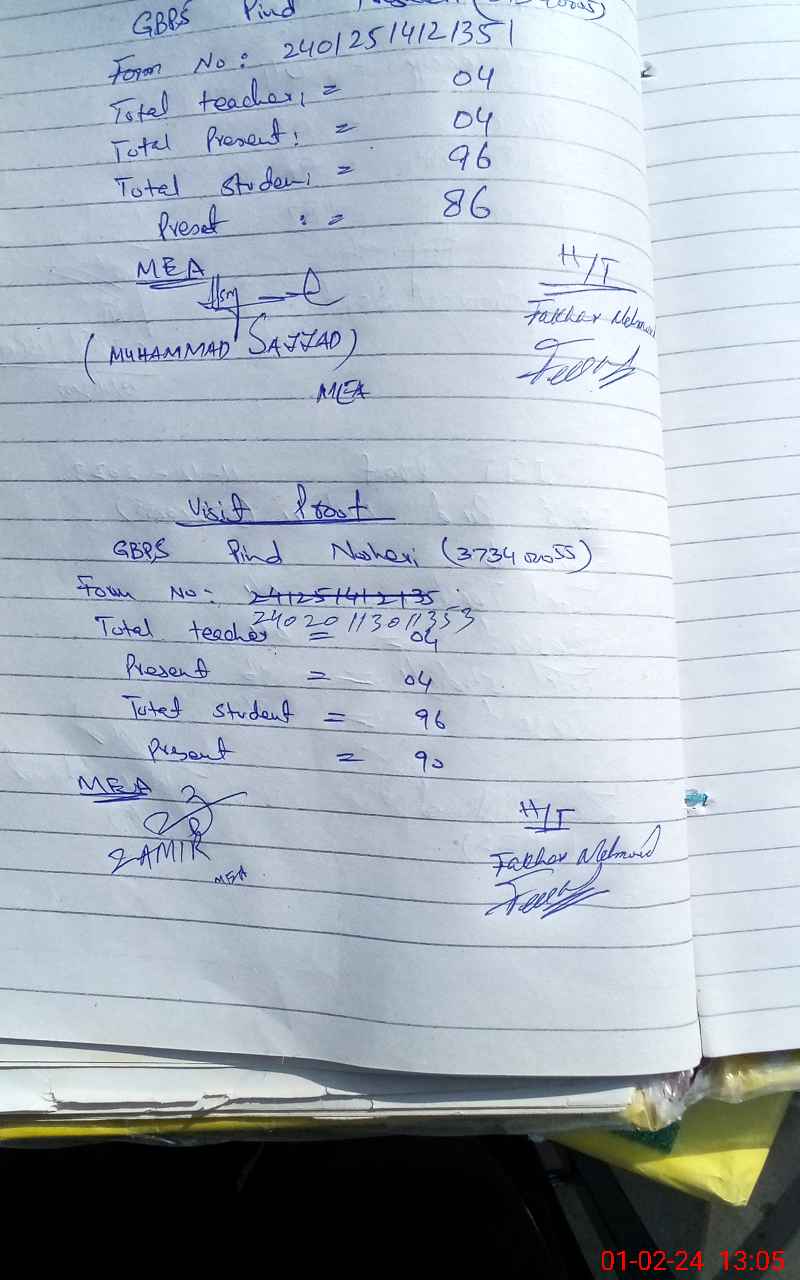 GBPS Pind
Form No: 24012514121351
Total teacher: = 04
Total Present: = 04
Total student: = 96
Preset : = 86
MEA
H/T
Fakhar Mehmood
(MUHAMMAD SAJJAD)
MEA
Visit Proof
GBPS Pind Nosheri (373402055)
Form No:- 241251412135
24020113011353
Total teacher = 04
Present = 04
Total student = 96
Present = 90
MEA
H/T
ZAMIR
Fakhar Mehmood
MEA
01-02-24 13:05